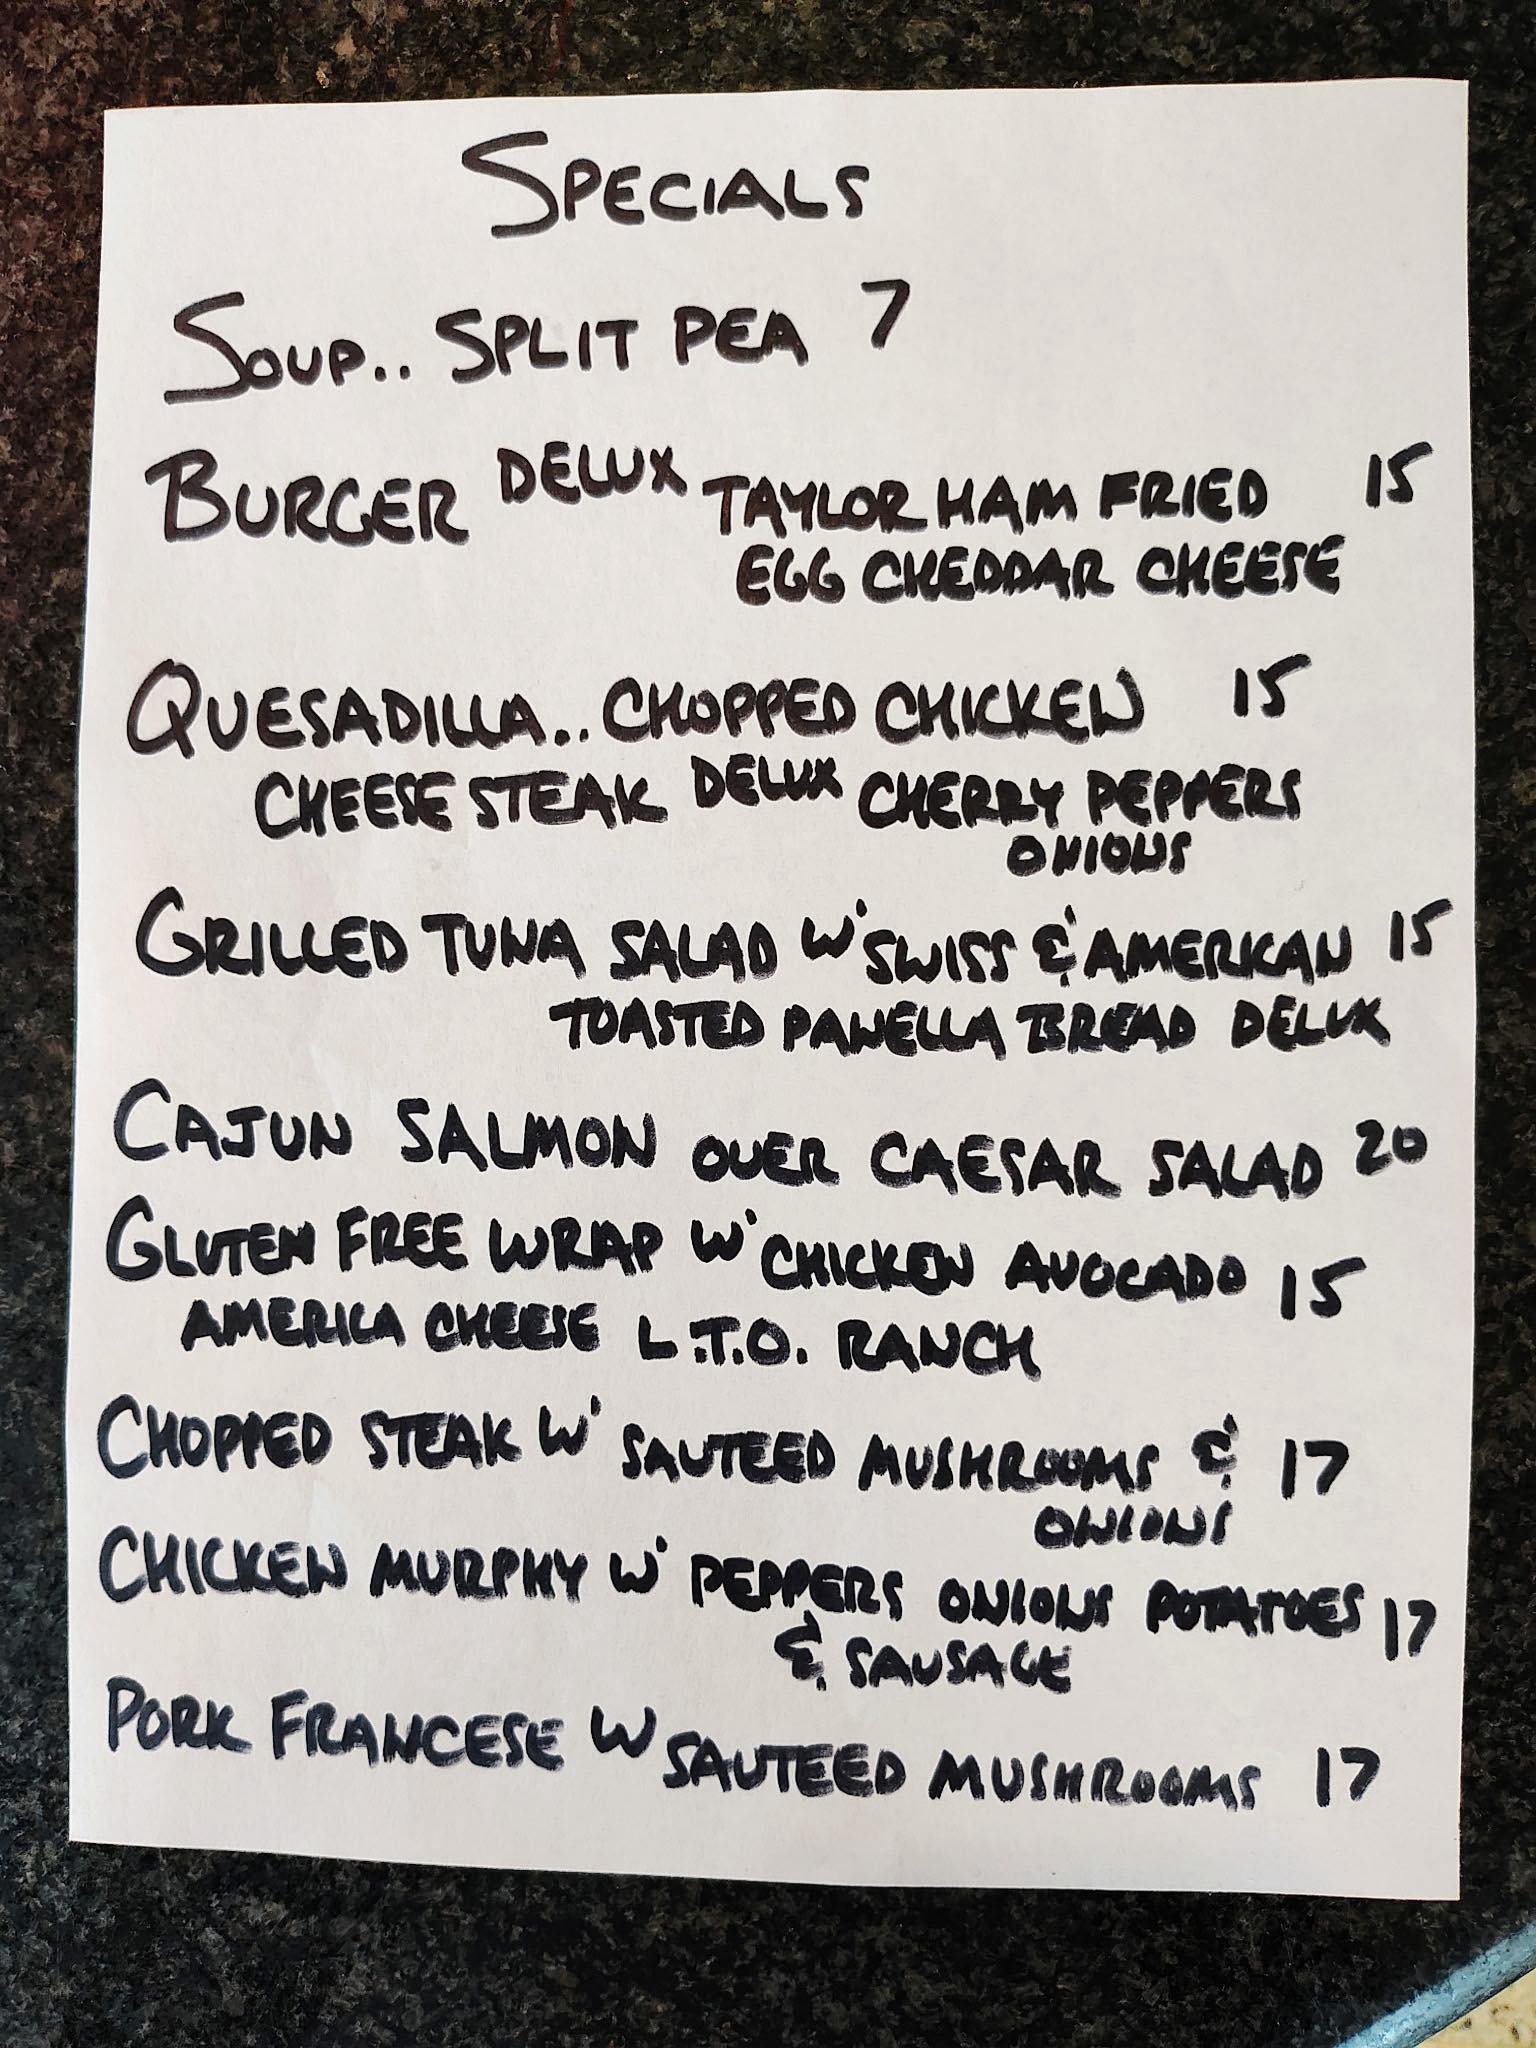 SPECIALS
SOUP.. SPLIT PEA 7
BURGER DELUX TAYLOR HAM FRIED 15
EGG CHEDDAR CHEESE
QUESADILLA.. CHOPPED CHICKEN 15
CHEESE STEAK DELUX CHERRY PEPPERS
ONIONS
GRILLED TUNA SALAD W' SWISS & AMERICAN 15
TOASTED PANELLA BREAD DELUX
CAJUN SALMON OVER CAESAR SALAD 20
GLUTEN FREE WRAP W' CHICKEN AVOCADO 15
AMERICA CHEESE L.T.O. RANCH
CHOPPED STEAK W' SAUTEED MUSHROOMS & 17
ONIONS
CHICKEN MURPHY W' PEPPERS ONIONS POTATOES 17
& SAUSAGE
PORK FRANCESE W SAUTEED MUSHROOMS 17